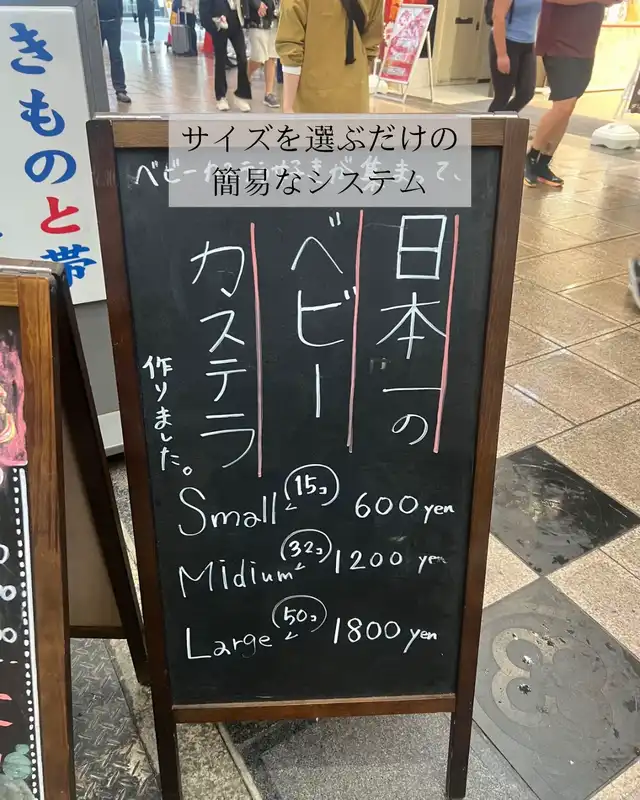 サイズを選ぶだけの
簡易なシステム
ベビーカステラ好きが集まって、
日本一の
ベビー
カステラ
作りました。
Small 15コ 600 yen
Midium 32コ 1200 yen
Large 50コ 1800 yen
きものと帯